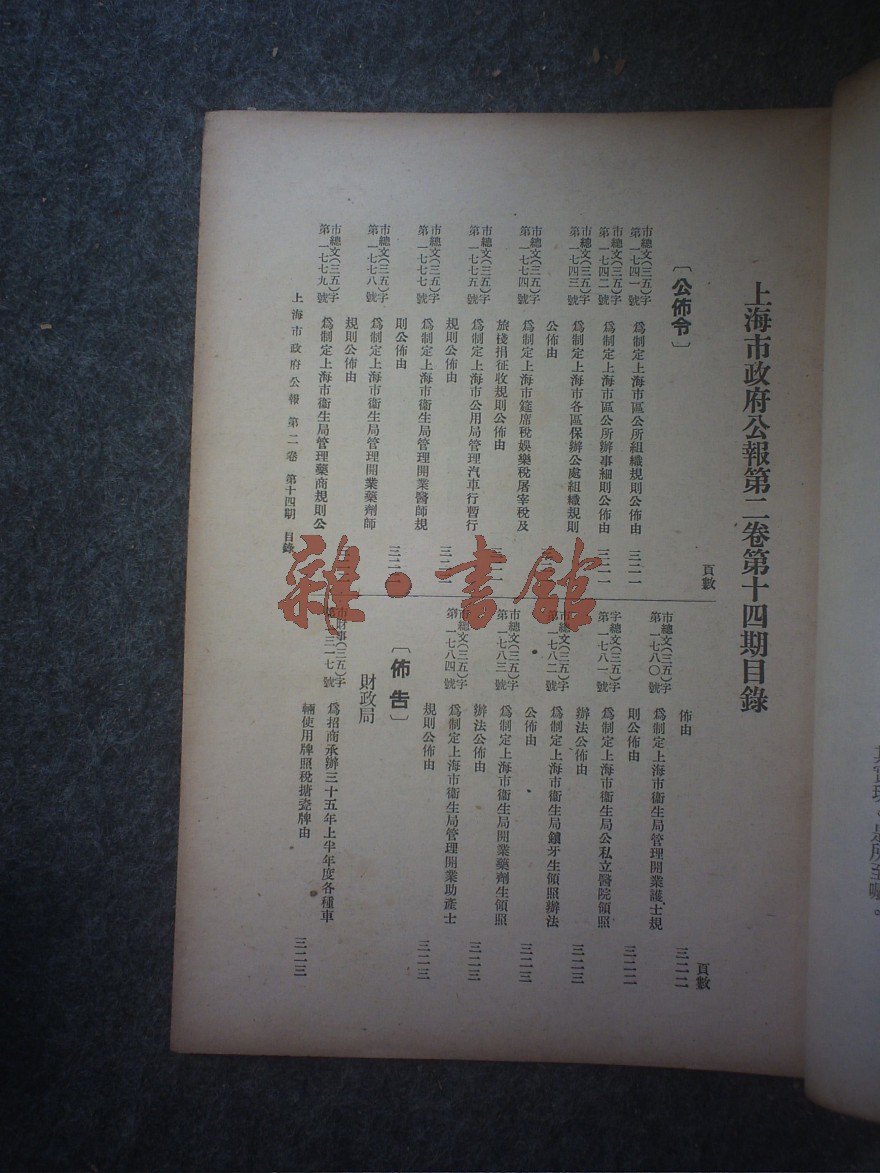 上海市政府公報第二卷第十四期目錄
頁數
〔公佈令〕
市總文(三五)字
第一七四一號
爲制定上海市區公所組織規則公佈由
三二一
市總文(三五)字
第一七四二號
爲制定上海市區公所辦事細則公佈由
三二一
市總文(三五)字
第一七四三號
爲制定上海市各區保辦公處組織規則
公佈由
市總文(三五)字
第一七七四號
爲制定上海市筵席稅娛樂稅屠宰稅及
旅棧捐征收規則公佈由
市總文(三五)字
第一七七五號
爲制定上海市公用局管理汽車行暫行
規則公佈由
市總文(三五)字
第一七七七號
爲制定上海市衞生局管理開業醫師規
則公佈由
市總文(三五)字
第一七七八號
爲制定上海市衞生局管理開業藥劑師
規則公佈由
市總文(三五)字
第一七七九號
爲制定上海市衞生局管理藥商規則公
頁數
佈由
三二二
市總文(三五)字
第一七八〇號
爲制定上海市衞生局管理開業護士規
則公佈由
三二二
字總文(三五)字
第一七八一號
爲制定上海市衞生局公私立醫院領照
辦法公佈由
三二三
市總文(三五)字
第一七八二號
爲制定上海市衞生局鑲牙生領照辦法
公佈由
三二三
市總文(三五)字
第一七八三號
爲制定上海市衞生局開業藥劑生領照
辦法公佈由
三二三
市總文(三五)字
第一七八四號
爲制定上海市衞生局管理開業助產士
規則公佈由
三二三
〔佈告〕
財政局
市財事(三五)字
第一三一七號
爲招商承辦三十五年上半年度各種車
輛使用牌照稅搪瓷牌由
三二三
上海市政府公報 第二卷 第十四期 目錄
雜·書館